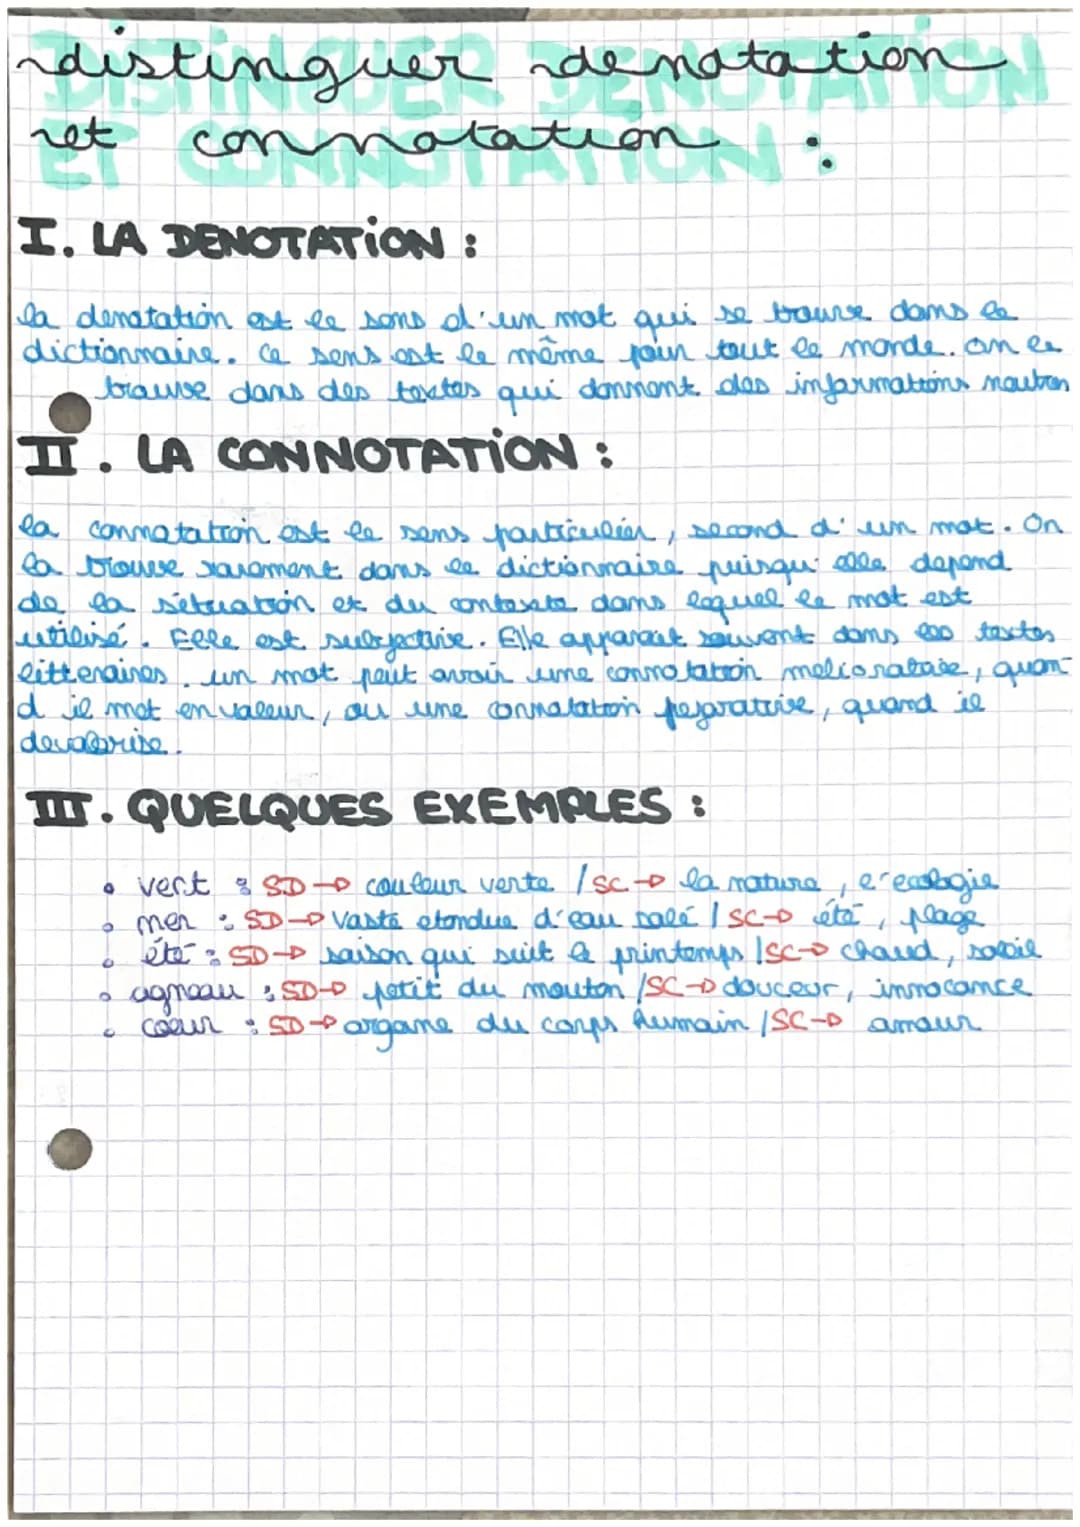 distinguer denotation
et connotation :
DISTINGUER DENOTATION
ET CONNOTATION :
I. LA DENOTATION :
la denotation est le sens d'un mot qui se trouve dans le
dictionnaire. Ce sens est le même pour tout le monde. on le
trouve dans des textes qui donnent des informations neutres
II. LA CONNOTATION :
la connotation est le sens particulier, second d'un mot. On
la trouve rarement dans le dictionnaire puisqu'elle depend
de la situation et du contexte dans lequel le mot est
utilisé. Elle est subjective. Elle apparait souvent dans les textes
litteraires. un mot peut avoir une connotation meliorataive, quan-
d il met en valeur, ou une connotation pejorative, quand il
devalorise.
III. QUELQUES EXEMPLES :
• vert : SD → couleur verte / SC → la nature, l'ecologie
• mer : SD → Vaste etendue d'eau salé / SC → été, plage
• été : SD → saison qui suit le printemps / SC → chaud, soleil
• agneau : SD → petit du mouton / SC → douceur, innocence
• coeur : SD → organe du corps humain / SC → amour